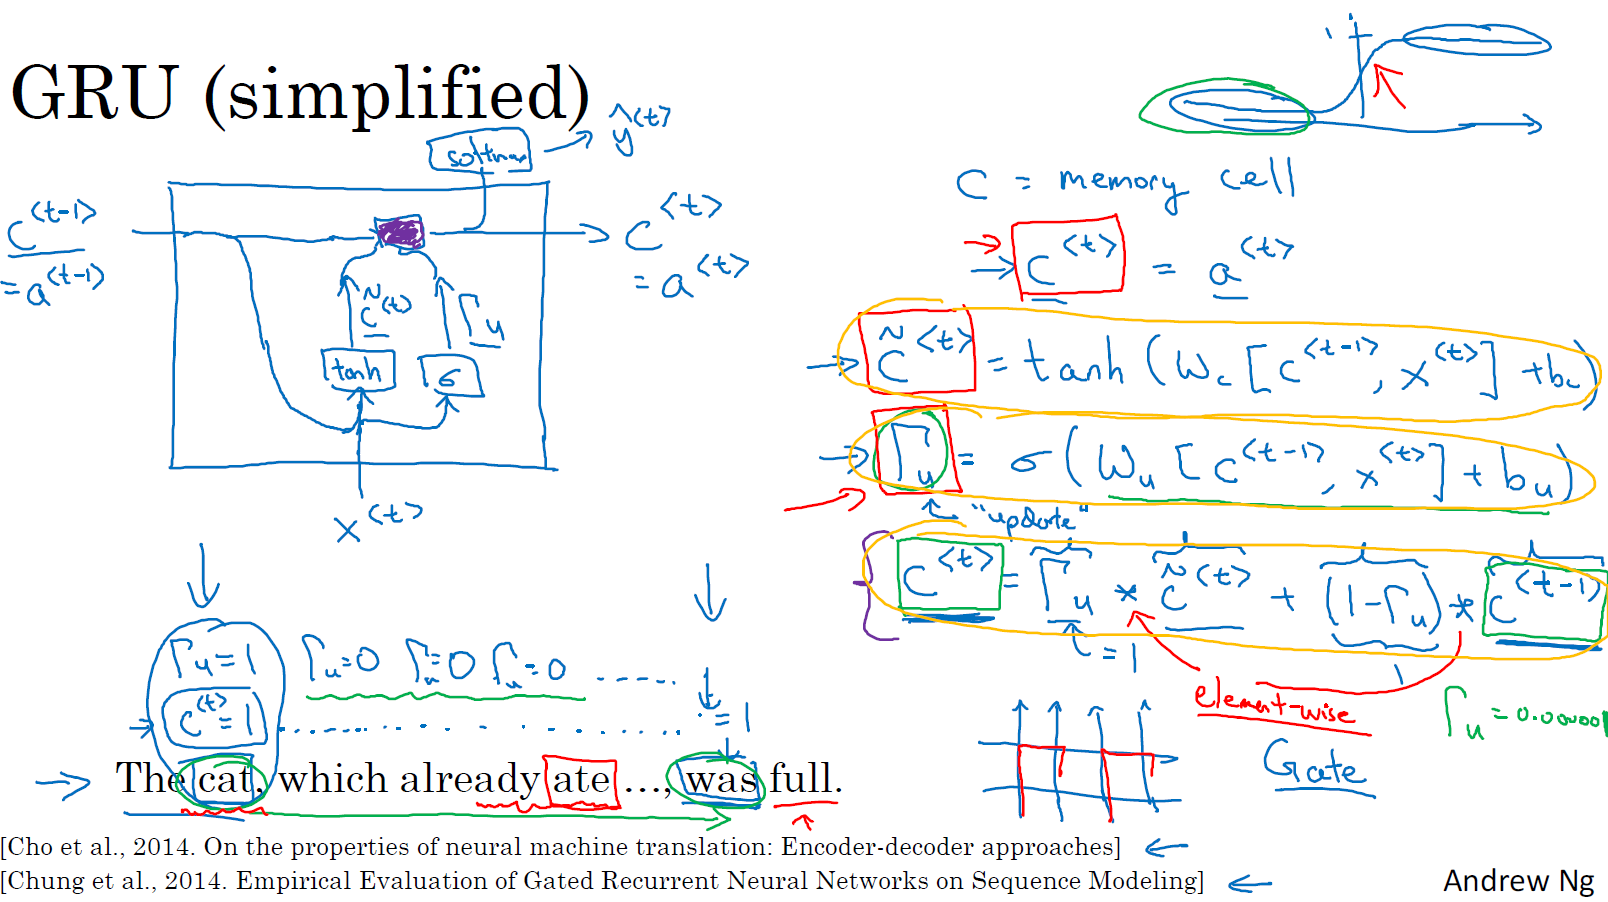 GRU (simplified)
softmax
ŷ<t>
c<t-1>
= a<t-1>
c̃<t>
Γu
tanh
σ
c<t>
= a<t>
x<t>
1
c = memory cell
c<t> = a<t>
c̃<t> = tanh (Wc [c<t-1>, x<t>] + bc)
Γu = σ (Wu [c<t-1>, x<t>] + bu)
"update"
c<t> = Γu * c̃<t> + (1-Γu) * c<t-1>
= 1
element-wise
Γu = 0.000001
Gate
Γu=1 Γu=0 Γu=0 Γu=0 .....
c<t>=1 ............ = 1
The cat, which already ate ..., was full.
[Cho et al., 2014. On the properties of neural machine translation: Encoder-decoder approaches]
[Chung et al., 2014. Empirical Evaluation of Gated Recurrent Neural Networks on Sequence Modeling]
Andrew Ng